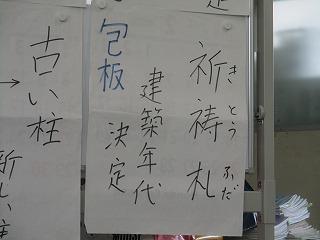 祈祷札
きとうふだ
建築年代
決定
包板
古い柱
→
新しい